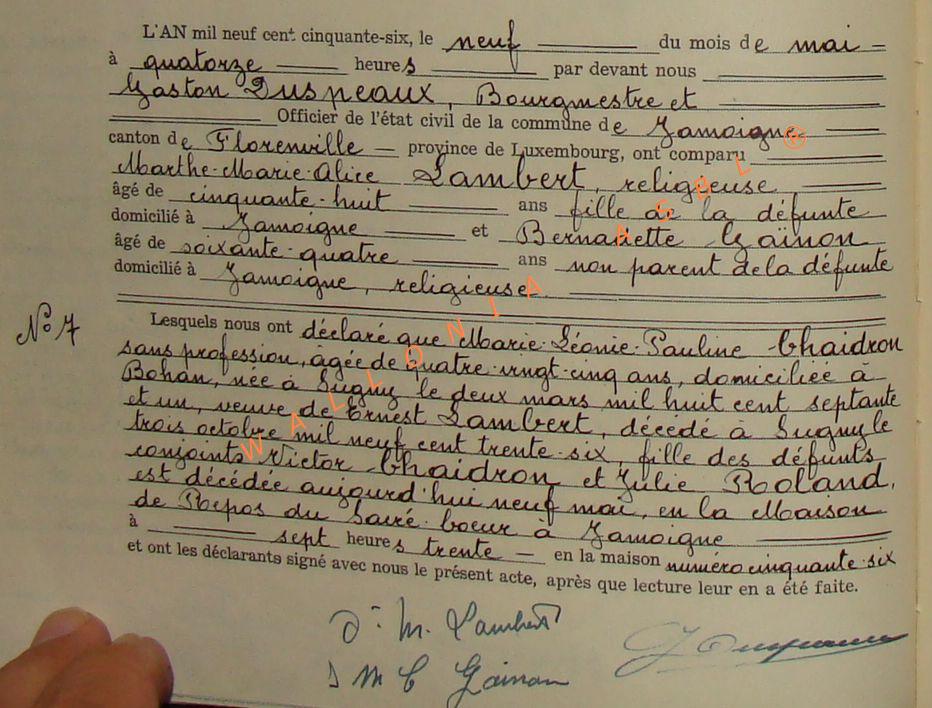 L'AN mil neuf cent cinquante-six, le neuf du mois de mai
à quatorze heures par devant nous
Gaston Duspeaux, Bourgmestre et
Officier de l'état civil de la commune de Jamoigne
canton de Florenville province de Luxembourg, ont comparu
Marthe-Marie-Alice Lambert, religieuse
âgé de cinquante-huit ans fille de la défunte
domicilié à Jamoigne et Bernadette Gaïnon
âgé de soixante-quatre ans non parent de la défunte
domicilié à Jamoigne, religieuse
N° 7
Lesquels nous ont déclaré que Marie-Léonie-Pauline Chaidron
sans profession, âgée de quatre-vingt-cinq ans, domiciliée à
Bohan, née à Sugny le deux mars mil huit cent septante
et un, veuve de Ernest Lambert, décédé à Sugny le
trois octobre mil neuf cent trente-six, fille des défunts
conjoints Victor Chaidron et Julie Roland,
est décédée aujourd'hui neuf mai, en la Maison
de Repos du Sacré-Coeur à Jamoigne
à sept heures trente en la maison numéro cinquante-six
et ont les déclarants signé avec nous le présent acte, après que lecture leur en a été faite.
M. Lambert
Gainon
WALLONIA AGBL ®